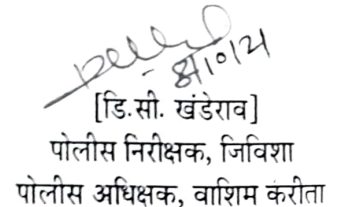 8/10/21
[डि.सी. खंडेराव]
पोलीस निरीक्षक, जिविशा
पोलीस अधिक्षक, वाशिम करीता